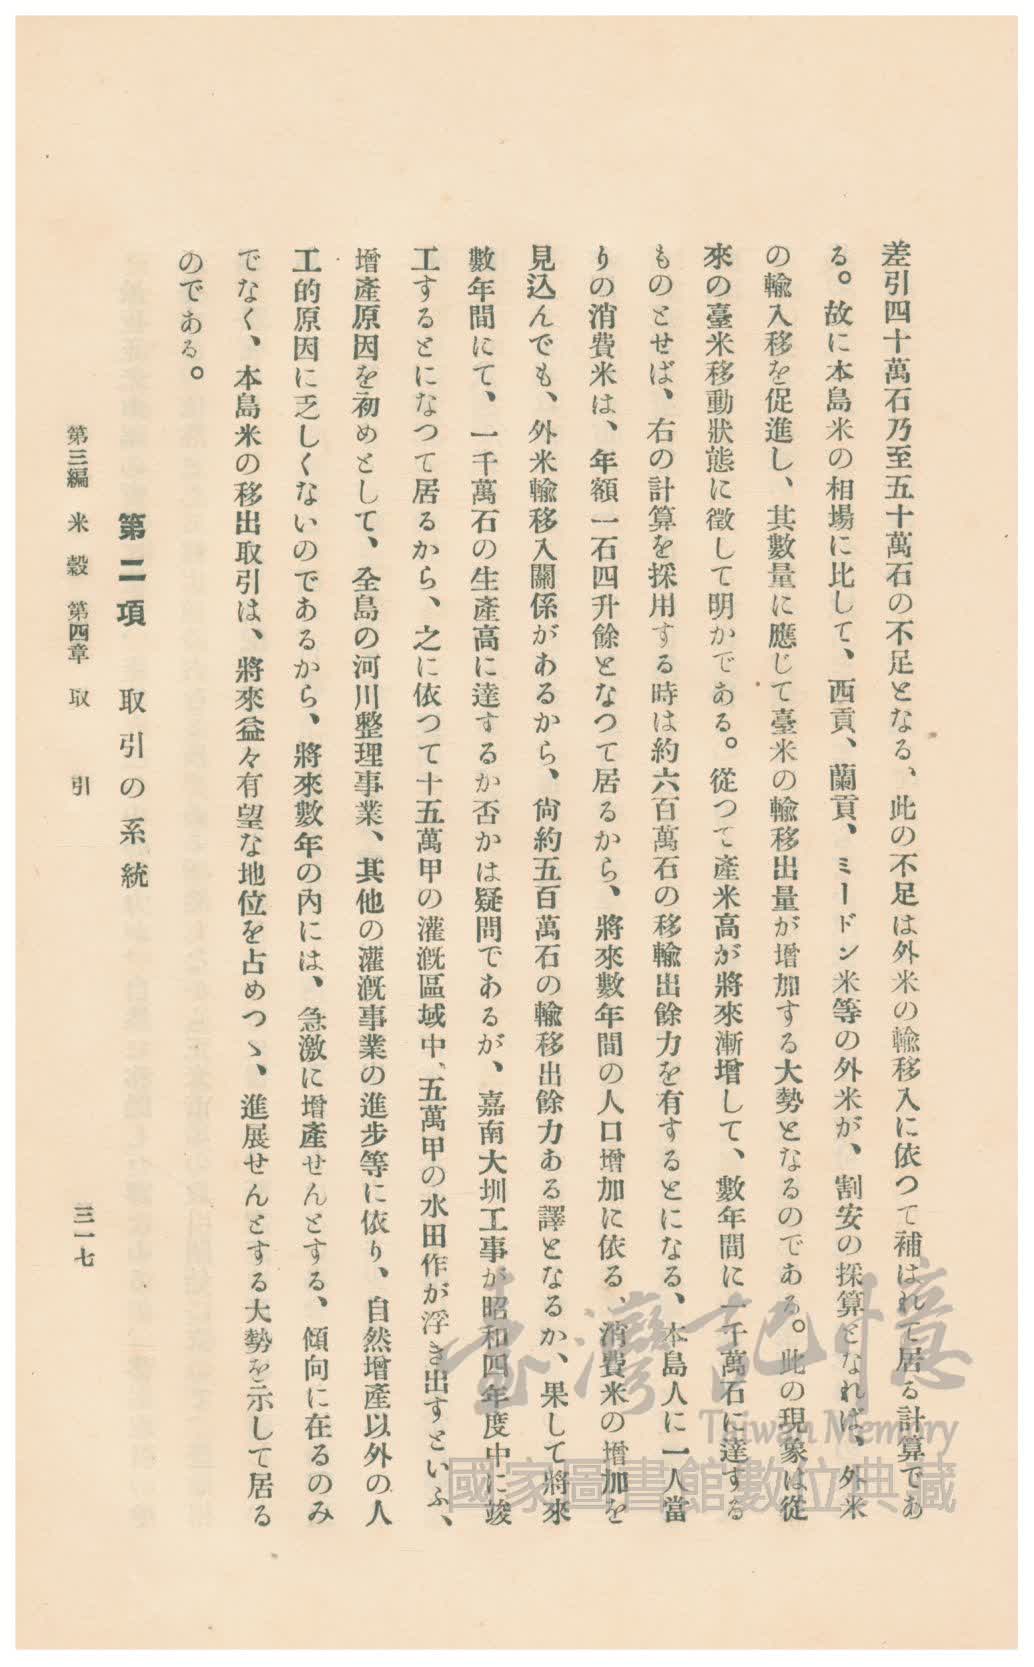 差引四十萬石乃至五十萬石の不足となる、此の不足は外米の輸移入に依つて補はれて居る計算であ
る。故に本島米の相場に比して、西貢、蘭貢、ミードン米等の外米が、割安の採算となれば、外米
の輸入移を促進し、其數量に應じて臺米の輸移出量が增加する大勢となるのである。此の現象は從
來の臺米移動狀態に徵して明かである。從つて產米高が將來漸增して、數年間に一千萬石に達する
ものとせば、右の計算を採用する時は約六百萬石の移輸出餘力を有するとになる、本島人に一人當
りの消費米は、年額一石四升餘となつて居るから、將來數年間の人口增加に依る、消費米の增加を
見込んでも、外米輸移入關係があるから、尙約五百萬石の輸移出餘力ある譯となるか、果して將來
數年間にて、一千萬石の生產高に達するか否かは疑問であるが、嘉南大圳工事が昭和四年度中に竣
工するとになつて居るから、之に依つて十五萬甲の灌漑區域中、五萬甲の水田作が浮き出すといふ、
增產原因を初めとして、全島の河川整理事業、其他の灌漑事業の進步等に依り、自然增產以外の人
工的原因に乏しくないのであるから、將來數年の內には、急激に增產せんとする、傾向に在るのみ
でなく、本島米の移出取引は、將來益々有望な地位を占めつゝ、進展せんとする大勢を示して居る
のである。
第二項　取引の系統
第三編　米穀　第四章　取　引
三一七
臺灣記憶
Taiwan Memory
國家圖書館數位典藏